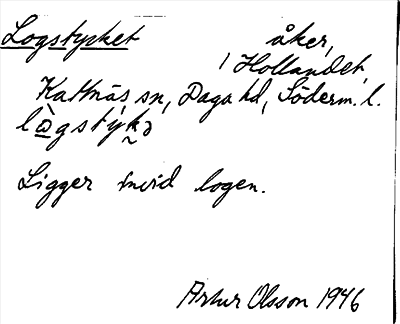 Logstycket åker,
i Hollandet,
Kattnäs sn, Daga hd, Söderm. l.
Ligger invid logen.
Artur Olsson 1946